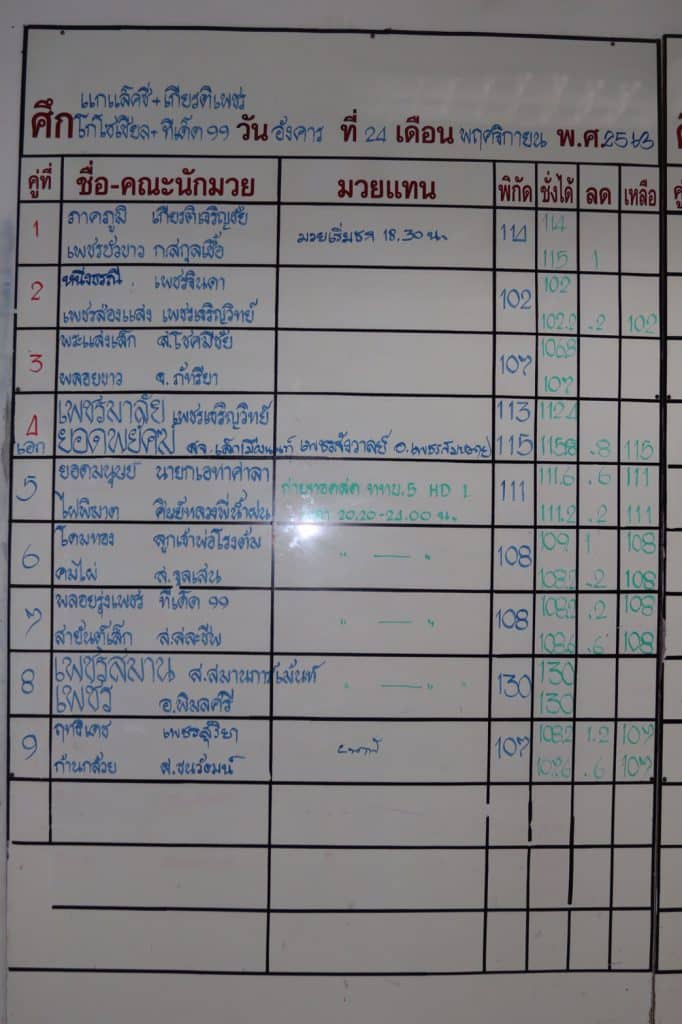 แกแล็คซี่+เกียรติเพชร
ศึก โกโซเชียล+ทีเด็ด 99 วัน อังคาร ที่ 24 เดือน พฤศจิกายน พ.ศ. 2563
คู่ที่ ชื่อ-คณะนักมวย มวยแทน พิกัด ชั่งได้ ลด เหลือ
1 ภาคภูมิ เกียรติเจริญชัย 114 114
เพชรบัวขาว ก.สกุลเชื้อ มวยเริ่มชก 18.30 น. 115 1
2 หนึ่งธรณี เพชรจินดา 102 102
เพชรส่องแสง เพชรเจริญวิทย์ 102.2 .2 102
3 พระแสงเล็ก ส.โชคมีชัย 107 106.8
พลอยขาว จ.ภัทรียา 107
4 เพชรมาลัย เพชรเจริญวิทย์ 113 112.4
เอก ยอดพยัคฆ์ 115 115.8 .8 115
5 ยอดมนุษย์ นายกเอท่าศาลา ถ่ายทอดสด ททบ.5 HD 1 111 111.6 .6 111
ไฟพิฆาต ศิษย์หลวงพี่น้ำฝน 20.20-24.00 น. 111.2 .2 111
6 โคมทอง ลูกเจ้าพ่อโรงต้ม " — " 108 109 1 108
คมไผ่ ส.จุลเสน 108.2 .2 108
7 พลอยรุ่งเพชร ทีเด็ด 99 " — " 108 108.2 .2 108
สายันต์เล็ก ส.สละชีพ 108.6 .6 108
8 เพชรสมาน ส.สมานการ์เม้นท์ " — " 130 130
เพชร อ.พิมลศรี 130
9 ฤทธิเดช เพชรสุริยา 107 108.2 1.2 107
ก้านกล้วย ส.ธนวัฒน์ 107.6 .6 107